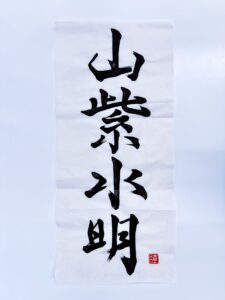 山紫水明